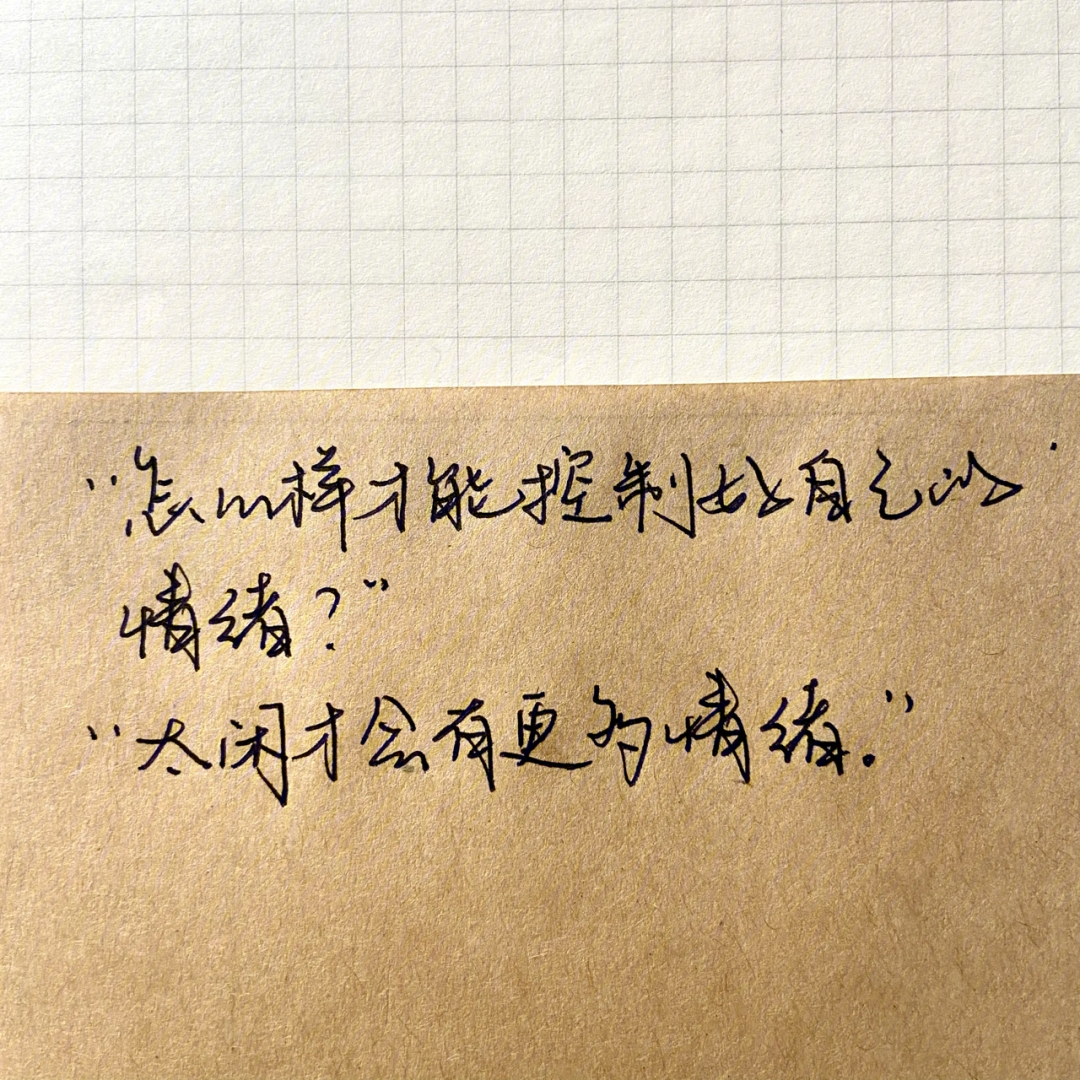 “怎么样才能控制好自己的
情绪？”
“太闲才会有更多情绪。”